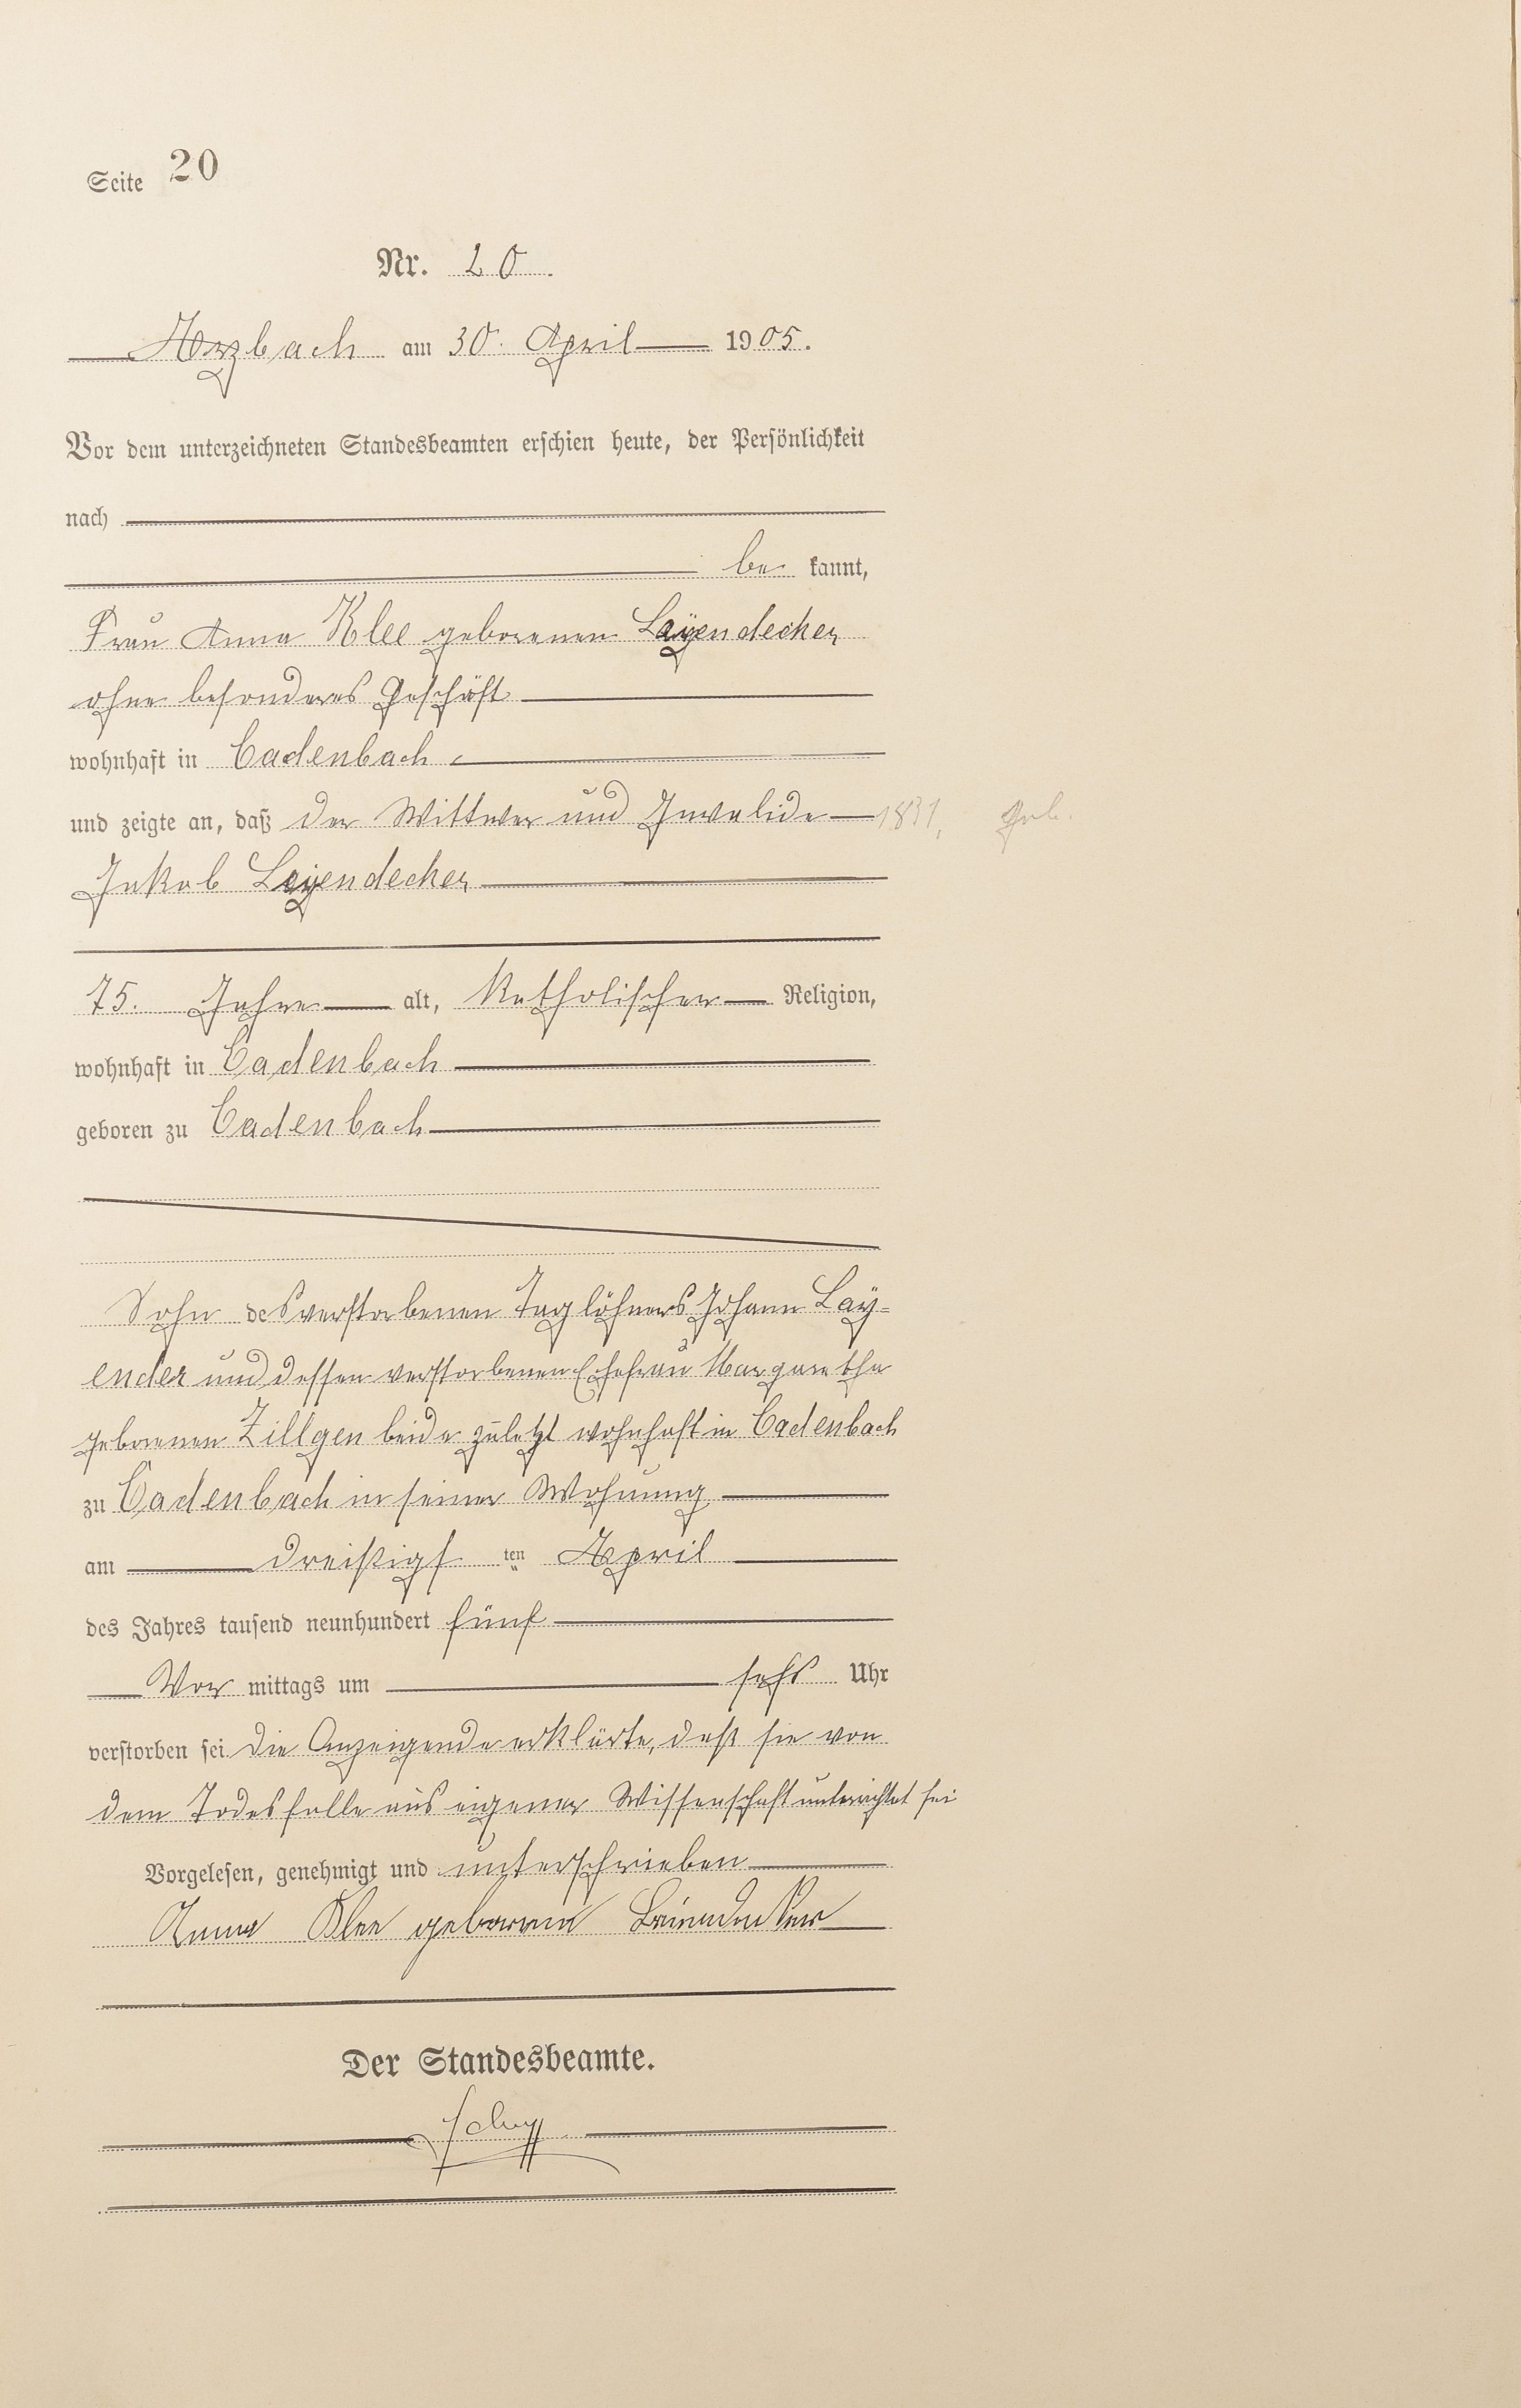 Seite 20
Nr. 20.
Arzbach am 30. April 1905.
Vor dem unterzeichneten Standesbeamten erschien heute, der Persönlichkeit
nach
be kannt,
Frau Anna Klee geborenen Layendecker
ohne besonderes Geschäft
wohnhaft in Cadenbach
und zeigte an, daß der Wittwer und Invalide 1831, Geb.
Jakob Layendecker
75. Jahre alt, katholischer Religion,
wohnhaft in Cadenbach
geboren zu Cadenbach
Sohn des verstorbenen Taglöhners Johann Lay-
ender und dessen verstorbenen Ehefrau Margaretha
geborenen Zillgen beide zuletzt wohnhaft in Cadenbach
zu Cadenbach in seiner Wohnung
am dreißigs ten April
des Jahres tausend neunhundert fünf
Vor mittags um sechs Uhr
verstorben sei. Die Anzeigende erklärte, daß sie von
dem Todesfalle aus eigener Wissenschaft unterrichtet sei
Vorgelesen, genehmigt und unterschrieben
Anna Klee geborene
Der Standesbeamte.